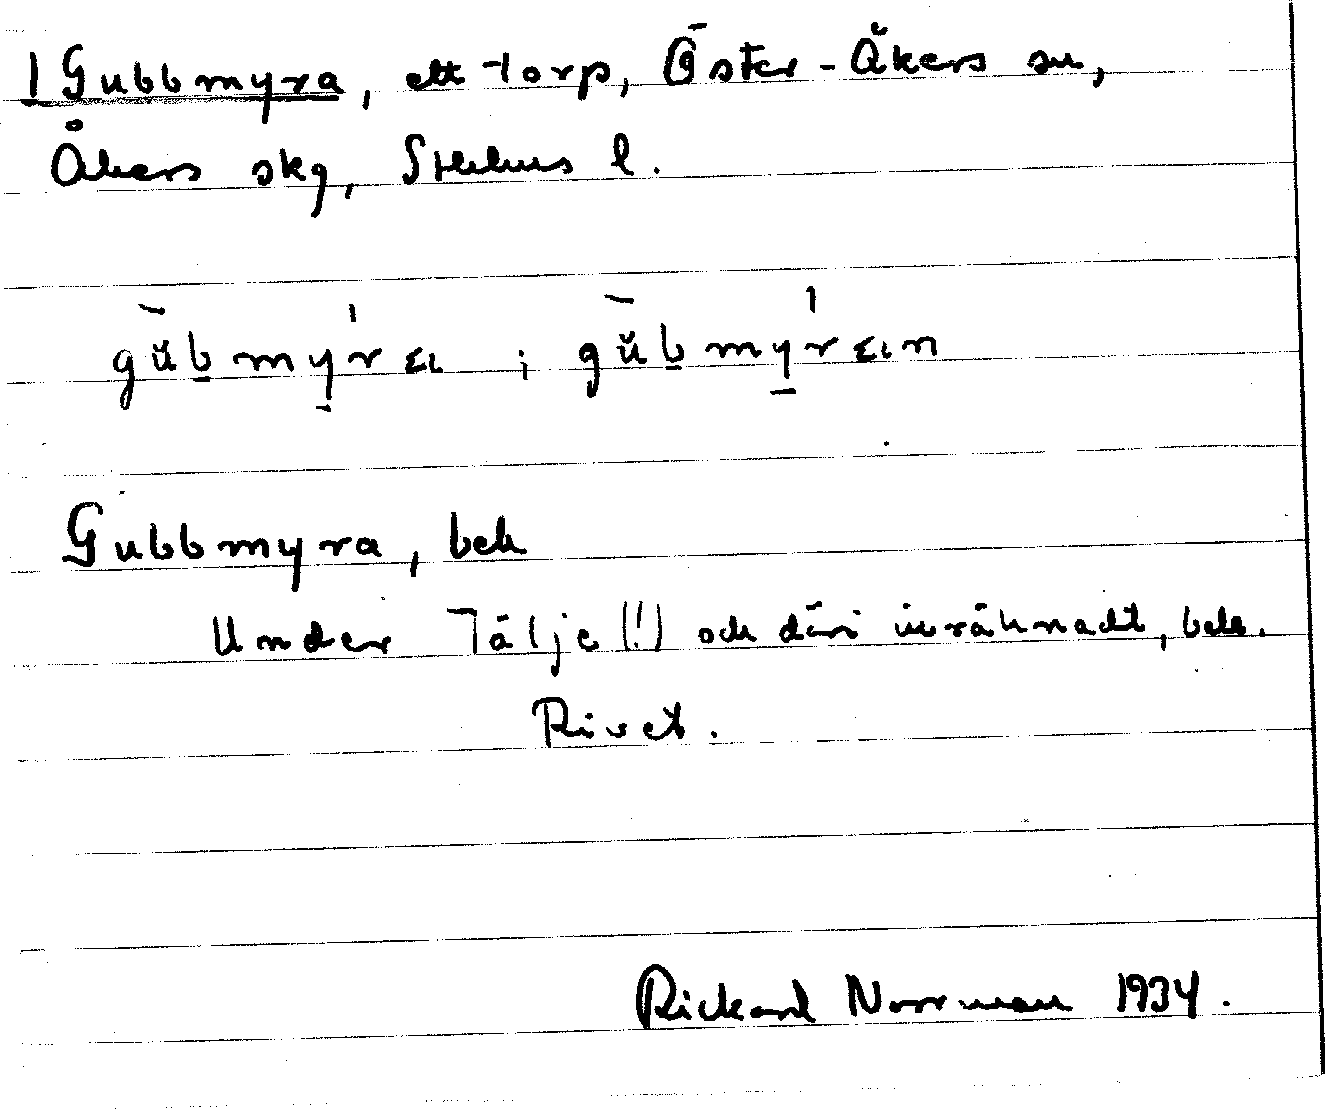 1 Gubbmyra, ett torp, Öster-Åkers sn,
Åkers skg, Sthlms l.
gŭb̲mýra ; gŭb̲mýran
Gubbmyra, beb
Under Tälje (!) och däri inräknadt, beb.
Rivet.
Rickard Norrman 1934.